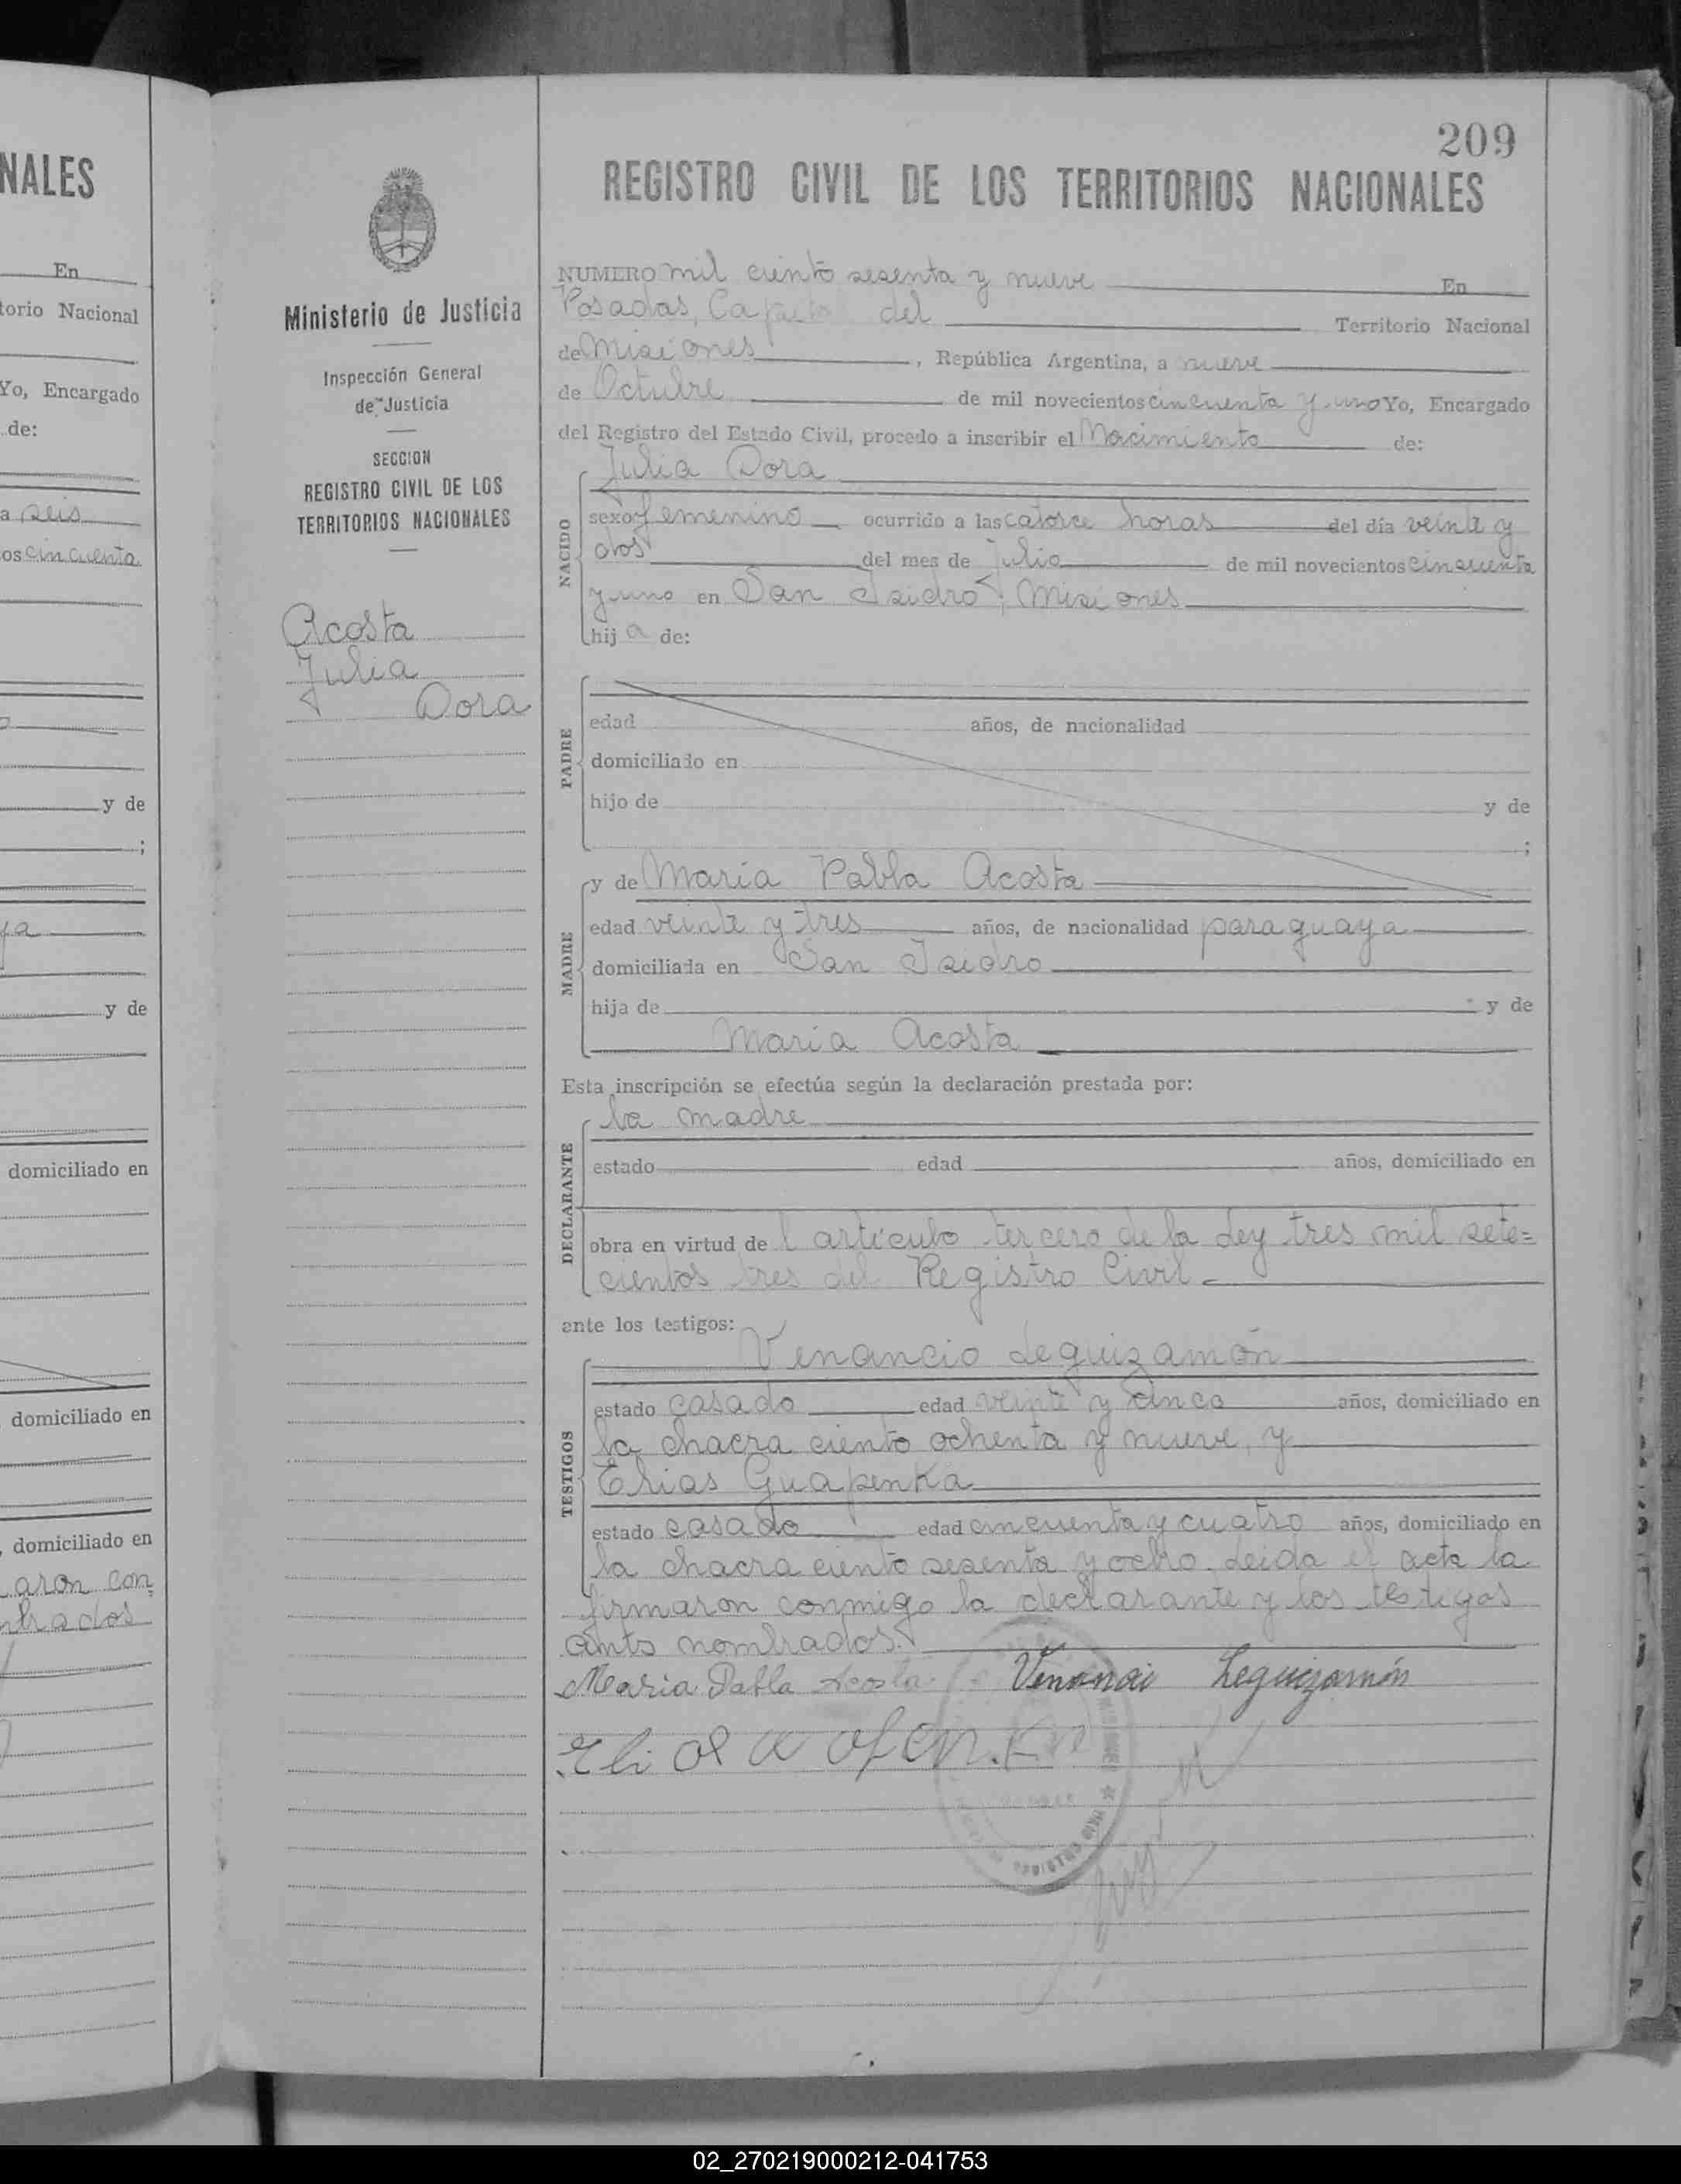 NALES
En
torio Nacional
Yo, Encargado
de:
a seis
os cincuenta
y de
;
ya
y de
domiciliado en
domiciliado en
domiciliado en
aron con
nbrados
Ministerio de Justicia
Inspección General
de Justicia
SECCION
REGISTRO CIVIL DE LOS
TERRITORIOS NACIONALES
Acosta
Julia
Dora
209
REGISTRO CIVIL DE LOS TERRITORIOS NACIONALES
NUMERO mil ciento sesenta y nueve En
Posadas, Capital del Territorio Nacional
de Misiones, República Argentina, a nueve
de Octubre de mil novecientos cincuenta y uno Yo, Encargado
del Registro del Estado Civil, procedo a inscribir el Nacimiento de:
Julia Dora
NACIDO
sexo femenino ocurrido a las catorce horas del día veinte y
dos del mes de Julio de mil novecientos cincuenta
y uno en San Isidro, Misiones
hija de:
PADRE
edad años, de nacionalidad
domiciliado en
hijo de y de
;
MADRE
y de Maria Pabla Acosta
edad veinte y tres años, de nacionalidad paraguaya
domiciliada en San Isidro
hija de y de
Maria Acosta
Esta inscripción se efectúa según la declaración prestada por:
DECLARANTE
la madre
estado edad años, domiciliado en
obra en virtud del artículo tercero de la Ley tres mil sete=
cientos tres del Registro Civil
ante los testigos:
TESTIGOS
Venancio Leguizamón
estado casado edad veinte y cinco años, domiciliado en
la chacra ciento ochenta y nueve, y
Elias Guapenka
estado casado edad cincuenta y cuatro años, domiciliado en
la chacra ciento sesenta y ocho. Leida el acta la
firmaron conmigo la declarante y los testigos
antes nombrados.
Maria Pabla Acosta Venancio Leguizamón
REGISTRO CIVIL
02_270219000212-041753